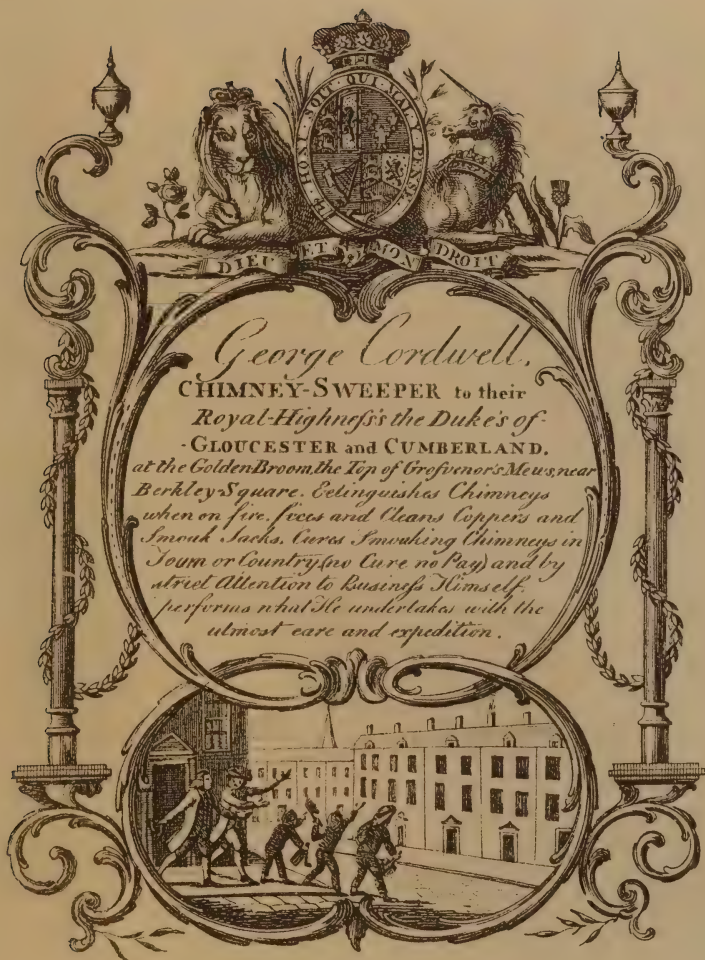 HONI · SOIT · QUI · MAL · Y · PENSE
DIEU ET MON DROIT
George Cordwell,
CHIMNEY-SWEEPER to their
Royal-Highneſs's the Duke's of-
-GLOUCESTER and CUMBERLAND,
at the Golden Broom, the Top of Groſvenor's Mews, near
Berkley-Square. Extinguishes Chimneys
when on fire, fixes and Cleans Coppers and
Smoak Jacks, Cures Smoaking Chimneys in
Town or Country (no Cure no Pay) and by
strict Attention to Buſineſs Himself,
performs what He undertakes with the
utmost care and expedition.